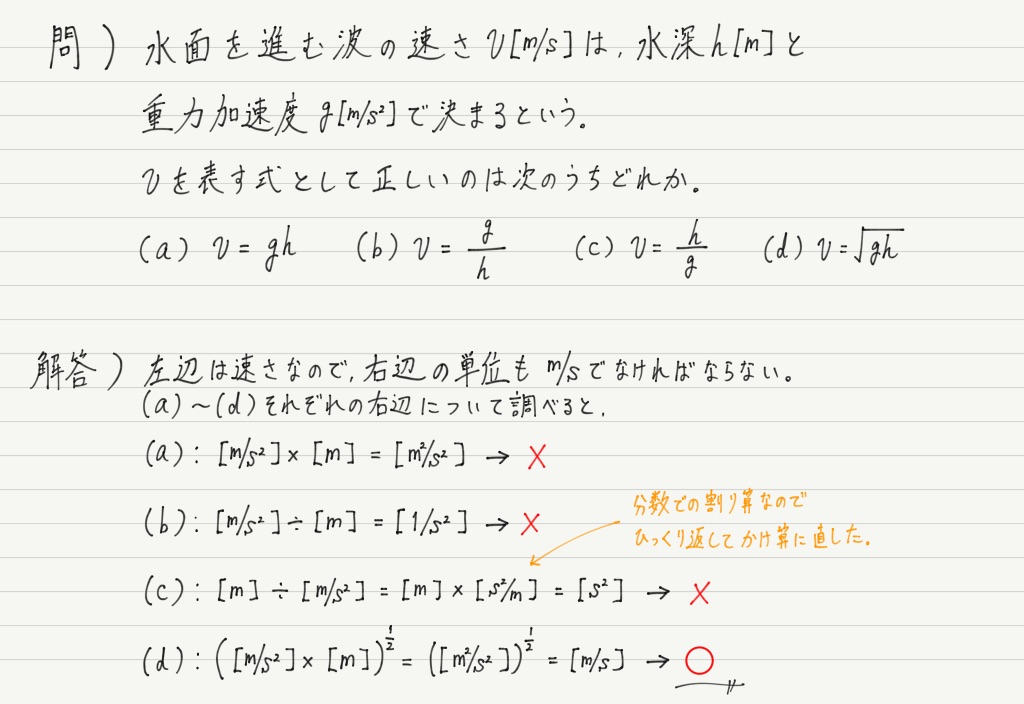 問) 水面を進む波の速さ v[m/s]は, 水深 h[m]と
重力加速度 g[m/s²]で決まるという。
vを表す式として正しいのは次のうちどれか。
(a) v = gh (b) v = g/h (c) v = h/g (d) v = √gh
解答) 左辺は速さなので, 右辺の単位も m/sでなければならない。
(a)～(d)それぞれの右辺について調べると,
(a): [m/s²] × [m] = [m²/s²] → ×
分数での割り算なので
(b): [m/s²] ÷ [m] = [1/s²] → ×
ひっくり返してかけ算に直した。
(c): [m] ÷ [m/s²] = [m] × [s²/m] = [s²] → ×
(d): ([m/s²] × [m])^½ = ([m²/s²])^½ = [m/s] → ○